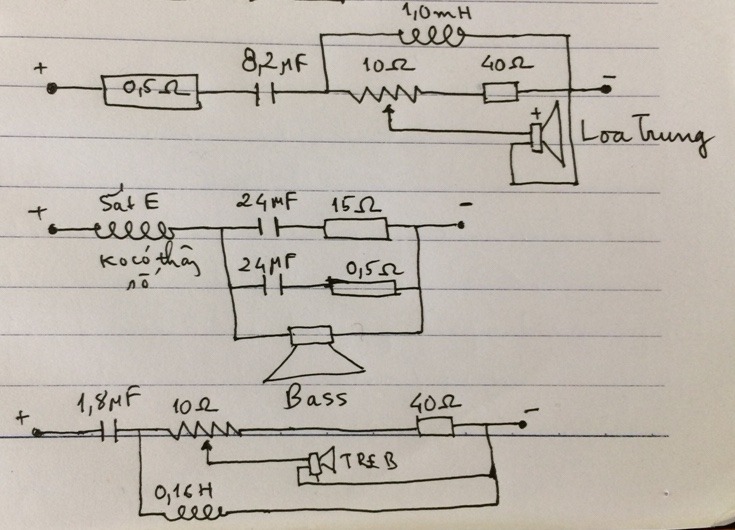 1,0mH
+ 0,5Ω 8,2µF 10Ω 40Ω -
+ Loa Trung
+ Sắt E 24µF 15Ω -
Ko có thông
số
24µF 0,5Ω
Bass
+ 1,8µF 10Ω 40Ω -
TREB
0,16H